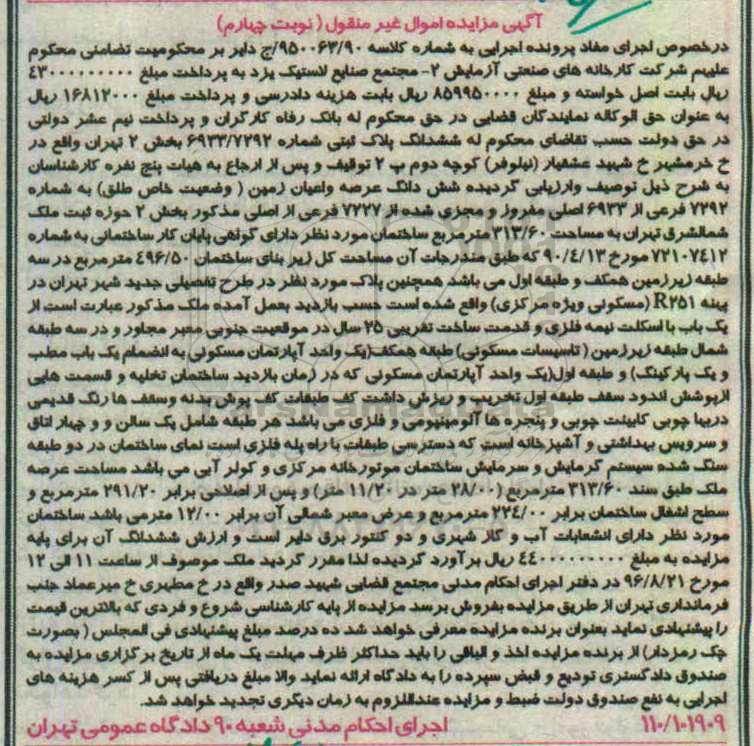 آگهی مزایده اموال غیر منقول (نوبت چهارم)
درخصوص اجرای مفاد پرونده اجرایی به شماره کلاسه ۹۵۰۰۶۳/۹۰/ج دایر بر محکومیت تضامنی محکوم
علیهم شرکت کارخانه های صنعتی آزمایش ۲- مجتمع صنایع لاستیک یزد به پرداخت مبلغ ۴۳۰۰۰۰۰۰۰۰۰
ریال بابت اصل خواسته و مبلغ ۸۵۹۹۵۰۰۰۰ ریال بابت هزینه دادرسی و پرداخت مبلغ ۱۶۸۱۲۰۰۰ ریال
به عنوان حق الوکاله نمایندگان قضایی در حق محکوم له بانک رفاه کارگران و پرداخت نیم عشر دولتی
در حق دولت حسب تقاضای محکوم له ششدانگ پلاک ثبتی شماره ۶۹۳۳/۷۲۹۲ بخش ۲ تهران واقع در
خ خرمشهر خ شهید عشقیار (نیلوفر) کوچه دوم پ ۲ توقیف و پس از ارجاع به هیات پنج نفره کارشناسان
به شرح ذیل توصیف وارزیابی گردیده شش دانگ عرصه واعیان زمین ( وضعیت خاص طلق) به شماره
۷۲۹۲ فرعی از ۶۹۳۳ اصلی مفروز و مجزی شده از ۷۲۲۷ فرعی از اصلی مذکور بخش ۲ حوزه ثبت ملک
شمالشرق تهران به مساحت ۳۱۳/۶۰ مترمربع ساختمان مورد نظر دارای گواهی پایان کار ساختمانی به شماره
۷۲۱۰۷۴۱۲ مورخ ۹۰/۴/۱۳ که طبق مندرجات آن مساحت کل زیر بنای ساختمان ۴۹۶/۵۰ مترمربع در سه
طبقه زیرزمین همکف و طبقه اول می باشد همچنین پلاک مورد نظر در طرح تفصیلی جدید شهر تهران در
پهنه R۲۵۱ (مسکونی ویژه مرکزی) واقع شده است حسب بازدید بعمل آمده ملک مذکور عبارت است از
یک باب با اسکلت نیمه فلزی و قدمت ساخت تقریبی ۲۵ سال در موقعیت جنوبی معبر مجاور و در سه طبقه
شمال طبقه زیرزمین ( تاسیسات مسکونی) طبقه همکف(یک واحد آپارتمان مسکونی به انضمام یک باب مطب
و یک پارکینگ) و طبقه اول(یک واحد آپارتمان مسکونی که در زمان بازدید ساختمان تخلیه و قسمت هایی
ازپوشش اندود سقف طبقه اول تخریب و ریزش داشت کف طبقات کف پوش بدنه وسقف ها رنگ قدیمی
دربها چوبی کابینت چوبی و پنجره ها آلومینیومی و فلزی می باشد هر طبقه شامل یک سالن و و چهار اتاق
و سرویس بهداشتی و آشپزخانه است که دسترسی طبقات با راه پله فلزی است نمای ساختمان در دو طبقه
سنگ شده سیستم گرمایش و سرمایش ساختمان موتورخانه مرکزی و کولر آبی می باشد مساحت عرصه
ملک طبق سند ۳۱۳/۶۰ مترمربع (۲۸/۰۰ متر در ۱۱/۲۰ متر) و پس از اصلاحی برابر ۲۹۱/۲۰ مترمربع و
سطح اشغال ساختمان برابر ۲۲۴/۰۰ مترمربع و عرض معبر شمالی آن برابر ۱۲/۰۰ مترمی باشد ساختمان
مورد نظر دارای انشعابات آب و گاز شهری و دو کنتور برق دایر است و ارزش ششدانگ آن برای پایه
مزایده به مبلغ ۴۴۰۰۰۰۰۰۰۰۰ ریال برآورد گردیده لذا مقرر گردید ملک موصوف از ساعت ۱۱ الی ۱۲
مورخ ۹۶/۸/۲۱ در دفتر اجرای احکام مدنی مجتمع قضایی شهید صدر واقع در خ مطهری خ میرعماد جنب
فرمانداری تهران از طریق مزایده بفروش برسد مزایده از پایه کارشناسی شروع و فردی که بالاترین قیمت
را پیشنهادی نماید بعنوان برنده مزایده معرفی خواهد شد ده درصد مبلغ پیشنهادی فی المجلس ( بصورت
چک رمزدار) از برنده مزایده اخذ و الباقی را باید حداکثر ظرف مهلت یک ماه از تاریخ برگزاری مزایده به
صندوق دادگستری تودیع و قبض سپرده را به دادگاه ارائه نماید والا مبلغ دریافتی پس از کسر هزینه های
اجرایی به نفع صندوق دولت ضبط و مزایده عنداللزوم به زمان دیگری تجدید خواهد شد.
۱۱۰/۱۰۱۹۰۹ اجرای احکام مدنی شعبه ۹۰ دادگاه عمومی تهران